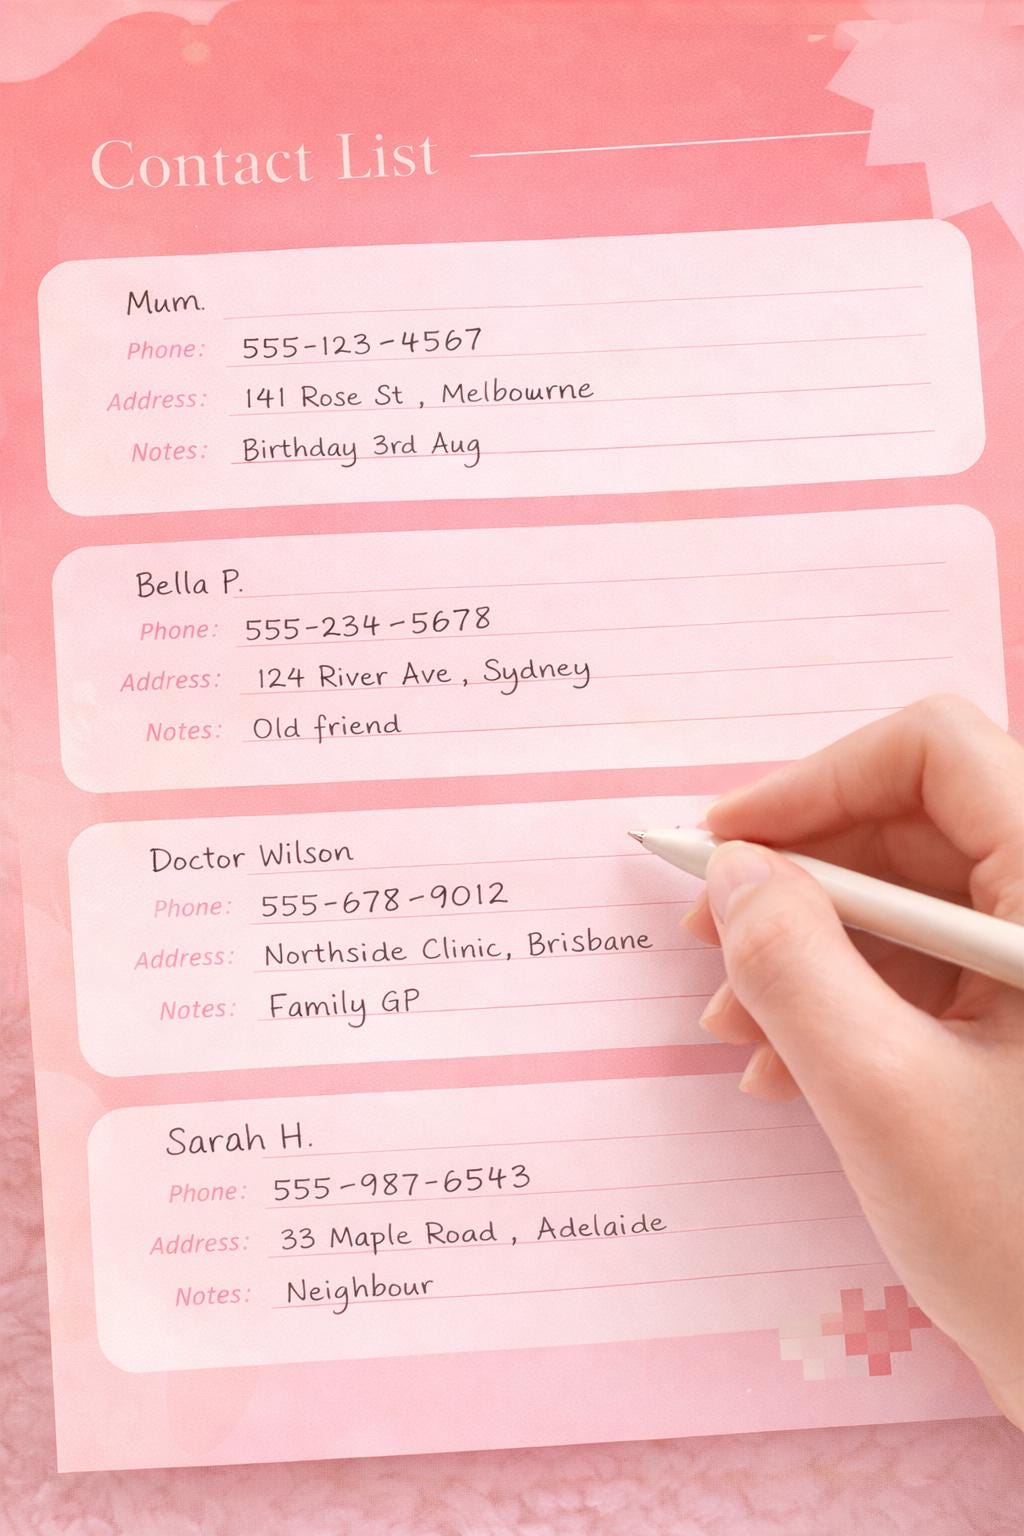 Contact List
Mum.
Phone: 555-123-4567
Address: 141 Rose St , Melbourne
Notes: Birthday 3rd Aug
Bella P.
Phone: 555-234-5678
Address: 124 River Ave , Sydney
Notes: Old friend
Doctor Wilson
Phone: 555-678-9012
Address: Northside Clinic, Brisbane
Notes: Family GP
Sarah H.
Phone: 555-987-6543
Address: 33 Maple Road , Adelaide
Notes: Neighbour